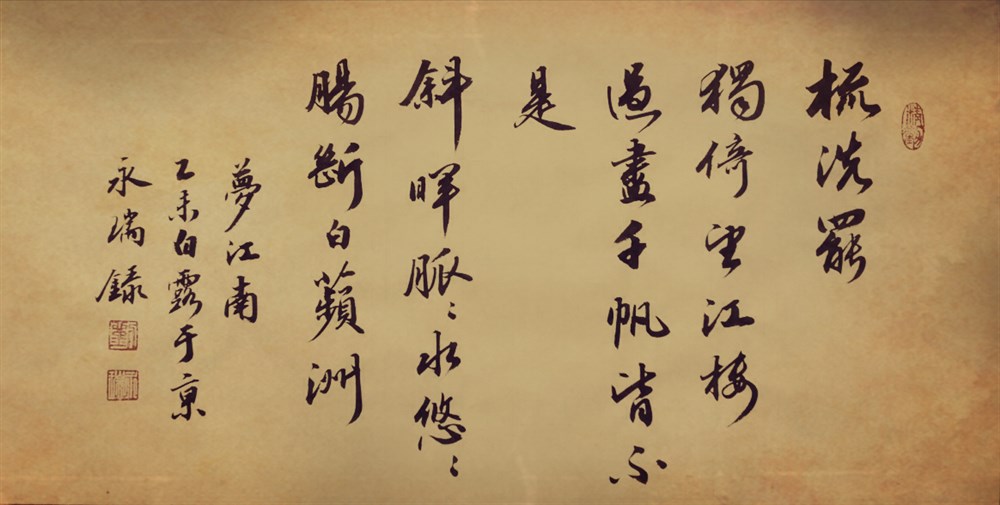 梳洗罷
獨倚望江楼
過盡千帆皆不
是
斜暉脈〻水悠〻
腸斷白蘋洲
夢江南
乙未白露于京
永瑞錄